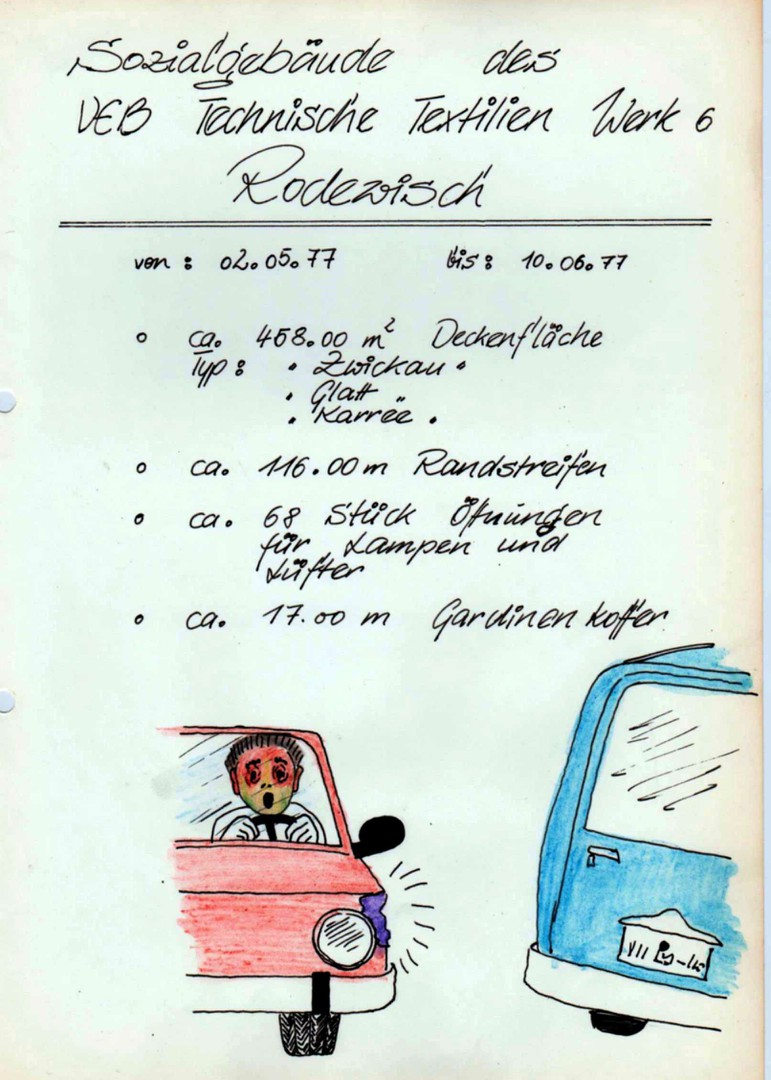 Sozialgebäude des
VEB Technische Textilien Werk 6
Rodewisch
von : 02.05.77 bis : 10.06.77
ca. 458.00 m² Deckenfläche
Typ : "Zwickau"
"Glatt"
"Karrée"
ca. 116.00 m Randstreifen
ca. 68 Stück Öfnungen
für Lampen und
Lüfter
ca. 17.00 m Gardinenkoffer
VII